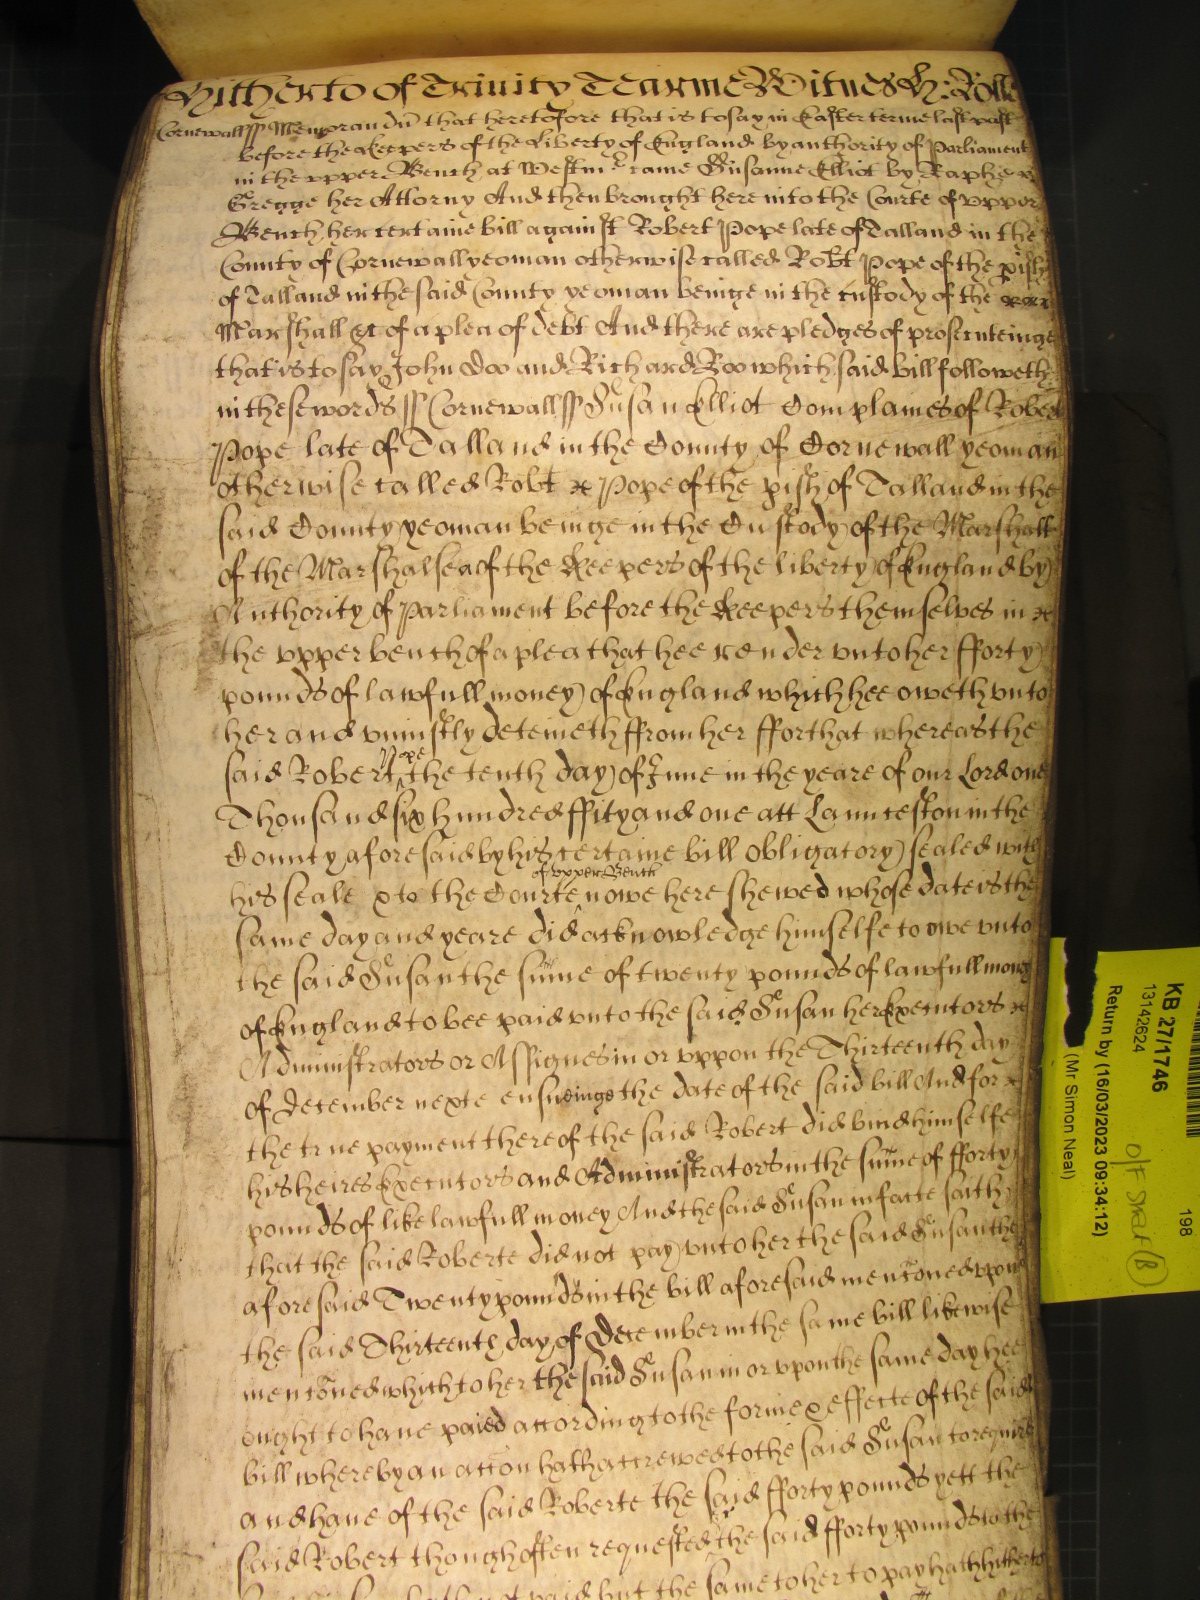 Hitherto of Trinity Tearme Witnes H: Rolle
Cornewall ss Memorandu that heretofore that is to say in Easter terme last past
before the Keepers of the Liberty of England by authority of Parliament
in the upper Bench at Westmr came Susanne Elliot by Raphe
Gregge her Attorny And then brought here into the Courte of upper
Bench her certaine bill against Robert Pope late of Talland in the
County of Cornewall yeoman otherwise called Robt Pope of the pish
of Talland in the said County yeoman beinge in the custody of the
Marshall &c of a plea of debt And there are pledges of prosecuteinge
that is to say John Doo and Richard Roo which said bill followeth
in these words ss Cornewall ss Susan Elliot Complaines of Robert
Pope late of Talland in the County of Cornewall yeoman
otherwise called Robt Pope of the pish of Talland in the
said County yeoman beinge in the Custody of the Marshall
of the Marshalsea of the Keepers of the liberty of England by
Authority of Parliament before the Keepers themselves in
the upper bench of a plea that hee render unto her fforty
pounds of lawfull money of England which hee oweth unto
her and uniustly deteineth ffrom her ffor that whereas the
said Robert Pope the tenth day of June in the yeare of our Lord one
Thousand six hundred ffifty and one att Launceston in the
County aforesaid by his certaine bill obligatory sealed with
his seale & to the Courte of upper Bench nowe here shewed whose date is the
same day and yeare did acknowledge himselfe to owe unto
the said Susan the sume of twenty pounds of lawfull money
of England to bee paid unto the said Susan her Executors
Administrators or Assignes in or uppon the Thirteenth day
of December nexte ensueinge the date of the said bill And for
the true payment thereof the said Robert did bind himselfe
his heires Executors and Administrators in the sume of fforty
pounds of like lawfull money And the said Susan in facte saith
that the said Roberte did not pay unto her the said Susan the
aforesaid Twenty pounds in the bill aforesaid menconed uppon
the said Thirteenth day of December in the same bill likewise
menconed which to her the said Susan in or upon the same day hee
ought to have paied according to the forme & effecte of the said
bill whereby an accon hath accrewed to the said Susan to require
and have of the said Roberte the said fforty pounds yett the
said Robert though often requested the said fforty pounds to the
paid but the same to her to pay hath hitherto
KB 27/1746
13142624
198
Return by (16/03/2023 09:34:12)
(Mr Simon Neal)